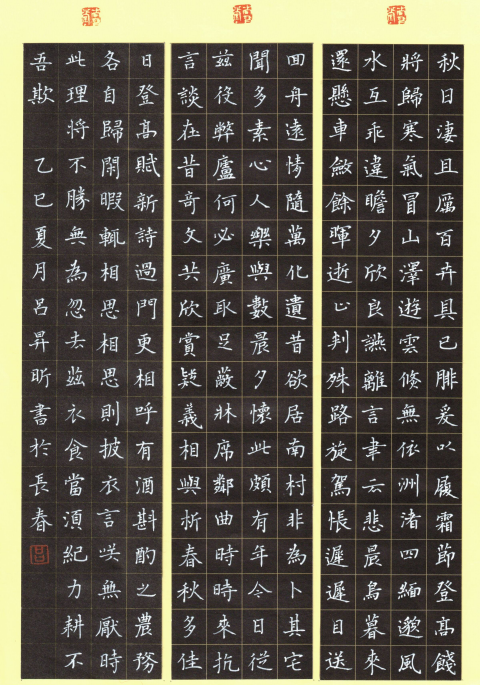 秋日淒且厲百卉具已腓爰以履霜節登高餞
將歸寒氣冒山澤遊雲倐無依洲渚四緬邈風
水互乖違瞻夕欣良讌離言聿云悲晨鳥暮來
還懸車斂餘暉逝止判殊路旋駕悵遲遲目送
回舟遠情隨萬化遺昔欲居南村非為卜其宅
聞多素心人樂與數晨夕懷此頗有年今日從
茲役弊廬何必廣取足蔽牀席鄰曲時時來抗
言談在昔奇文共欣賞疑義相與析春秋多佳
日登高賦新詩過門更相呼有酒斟酌之農務
各自歸閑暇輒相思相思則披衣言笑無厭時
此理將不勝無為忽去茲衣食當須紀力耕不
吾欺 乙巳夏月呂昇昕書於長春
呂